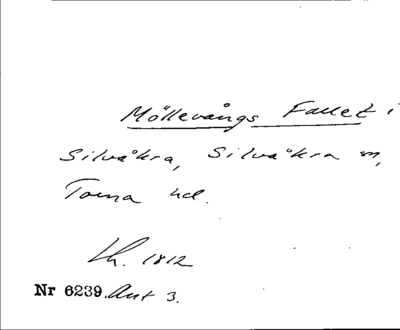 Möllevångs Fallet i
Silvåkra, Silvåkra sn,
Torna hd.
Lh. 1812
Nr 6239. Aut 3.